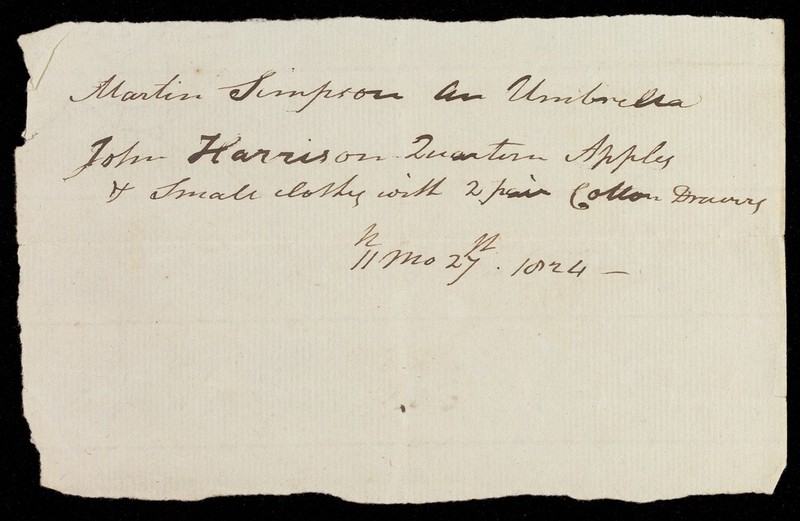 Martin Simpson An Umbrella
John Harrison Quartern Apples
& Small clothes with 2 pair Cotton Drawers
11th Mo 27th. 1824 —